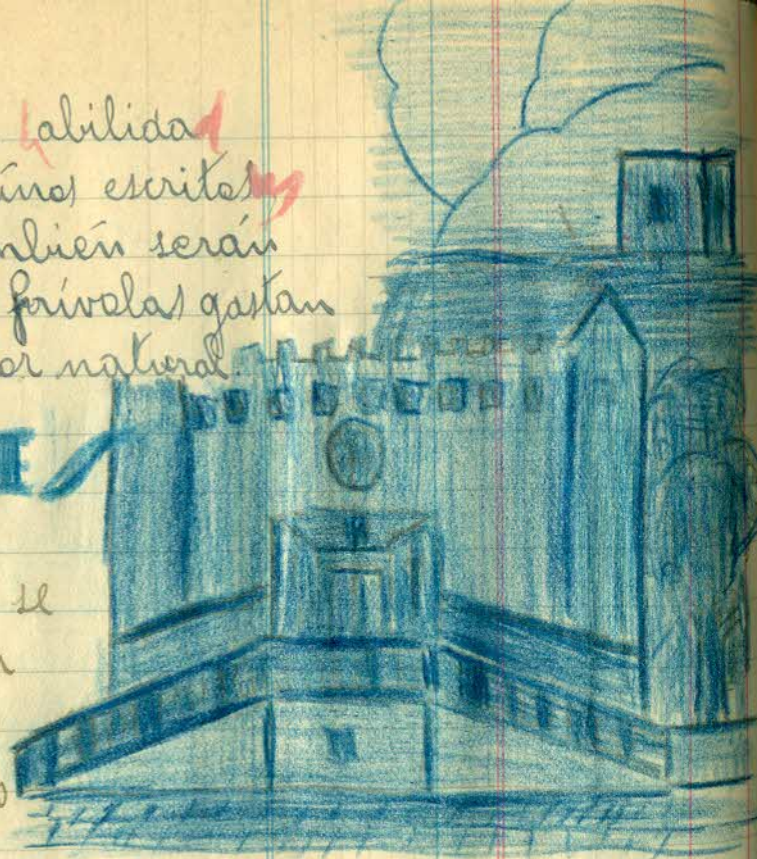 habilidad
inas escritas
mbién serán
frívolas gastan
or natural.
se